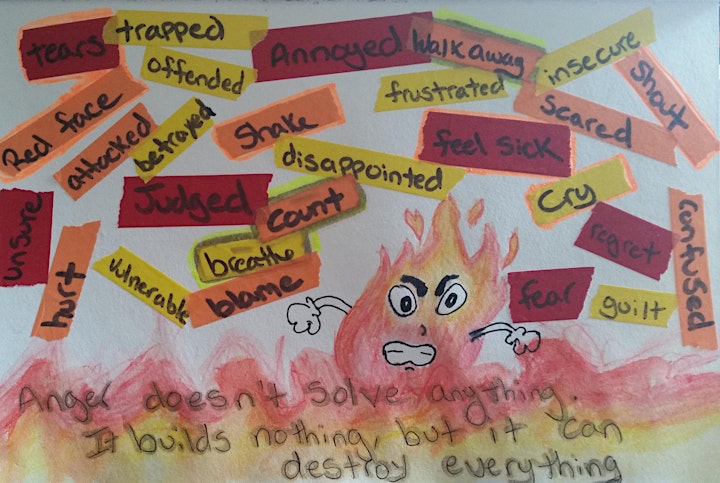 tears
trapped
offended
Annoyed
Walk away
insecure
Shout
frustrated
Scared
Red face
attacked
betrayed
Shake
disappointed
feel sick
Cry
Judged
count
unsure
hurt
vulnerable
breathe
blame
fear
regret
guilt
Confused
Anger doesn't solve anything.
It builds nothing, but it can
destroy everything